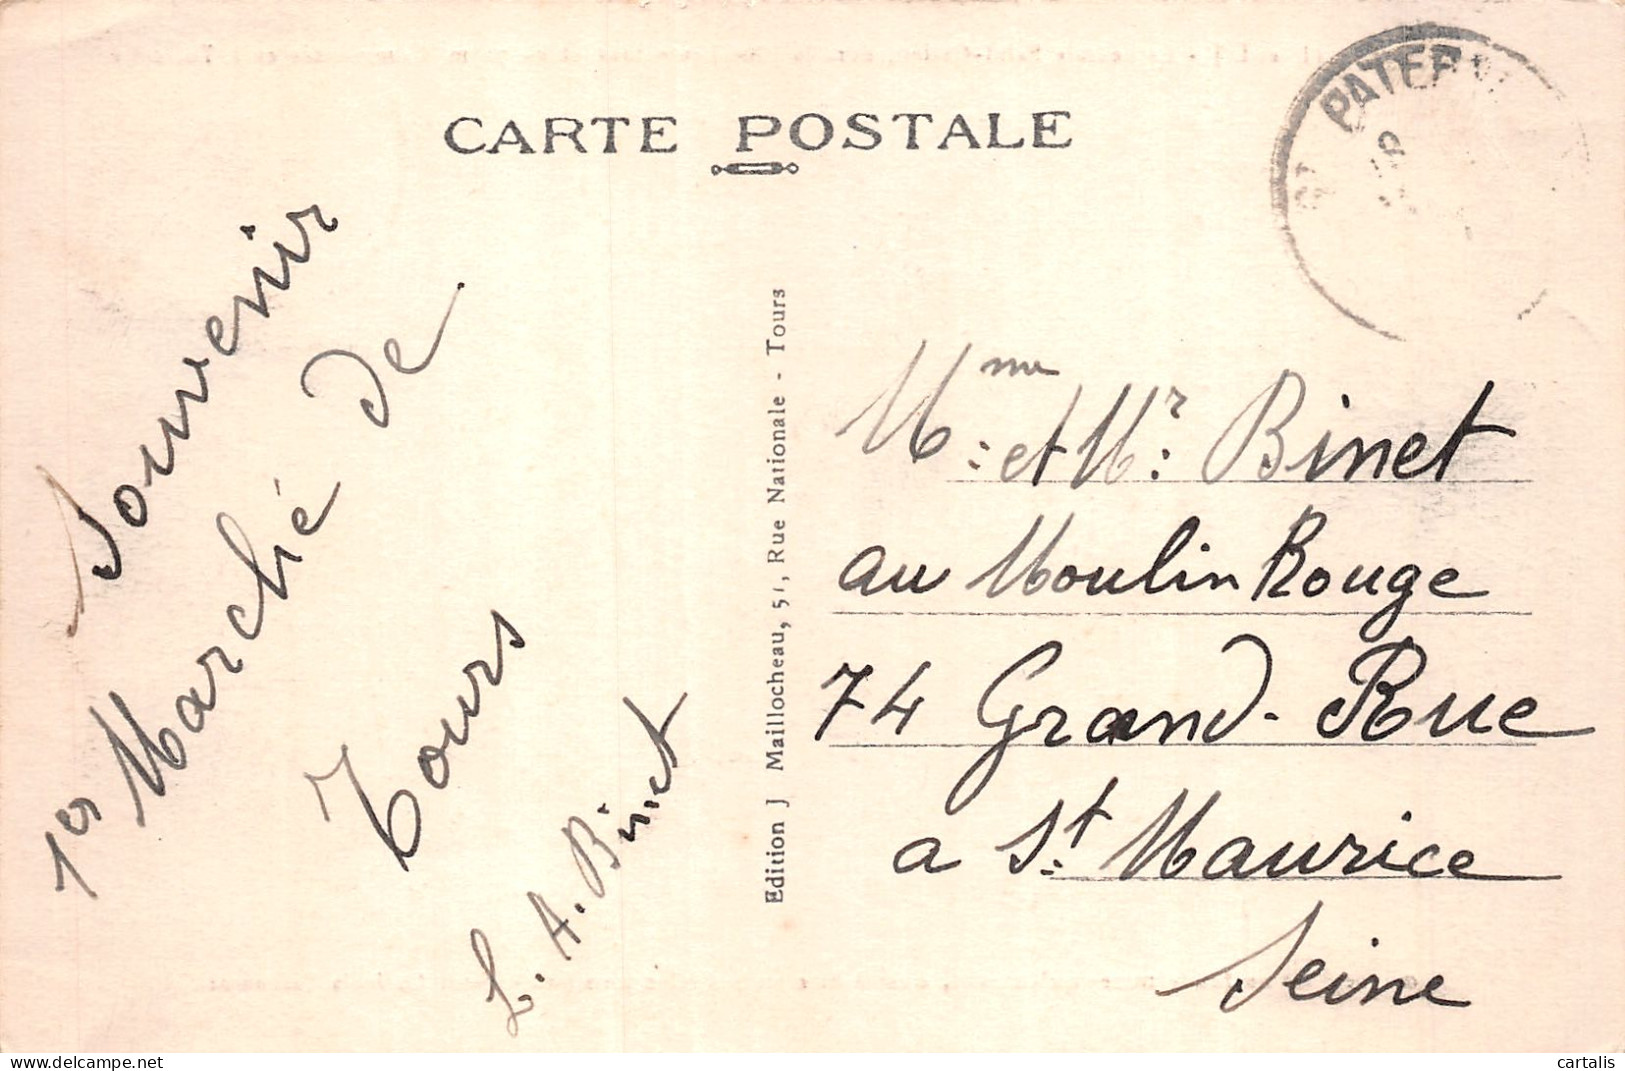 CARTE POSTALE
PATER
Souvenir
1er Marché de
Tours
L. A. Binet
Edition J Maillocheau, 51, Rue Nationale - Tours
Mme et Mr Binet
au Moulin Rouge
74 Grand-Rue
a St Maurice
Seine
cartalis